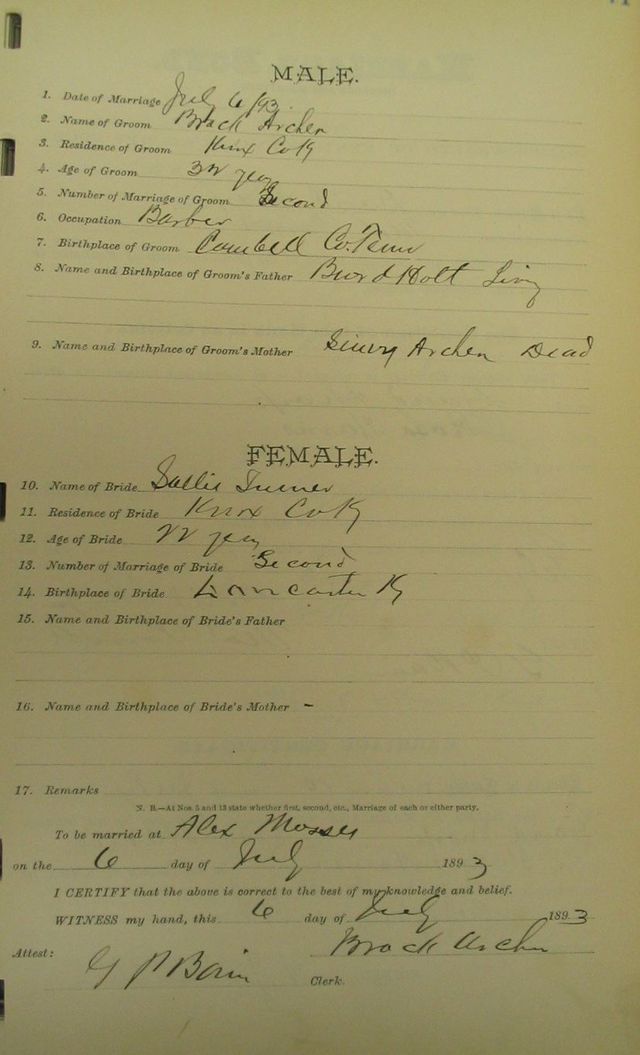 MALE.
1. Date of Marriage July 6/93
2. Name of Groom Brock Archer
3. Residence of Groom Knox Co Ky
4. Age of Groom 32 years
5. Number of Marriage of Groom Second
6. Occupation Barber
7. Birthplace of Groom Cambell Co. Tenn
8. Name and Birthplace of Groom's Father Holt Living
9. Name and Birthplace of Groom's Mother Archer Dead
FEMALE.
10. Name of Bride Sallie Turner
11. Residence of Bride Knox Co Ky
12. Age of Bride 22 years
13. Number of Marriage of Bride Second
14. Birthplace of Bride Lancaster Ky
15. Name and Birthplace of Bride's Father
16. Name and Birthplace of Bride's Mother -
17. Remarks
N. B.—At Nos. 5 and 13 state whether first, second, etc., Marriage of each or either party.
To be married at Alex Moses
on the 6 day of July 1893
I CERTIFY that the above is correct to the best of my knowledge and belief.
WITNESS my hand, this 6 day of July 1893
Brock Archer
Attest:
G P Clerk.